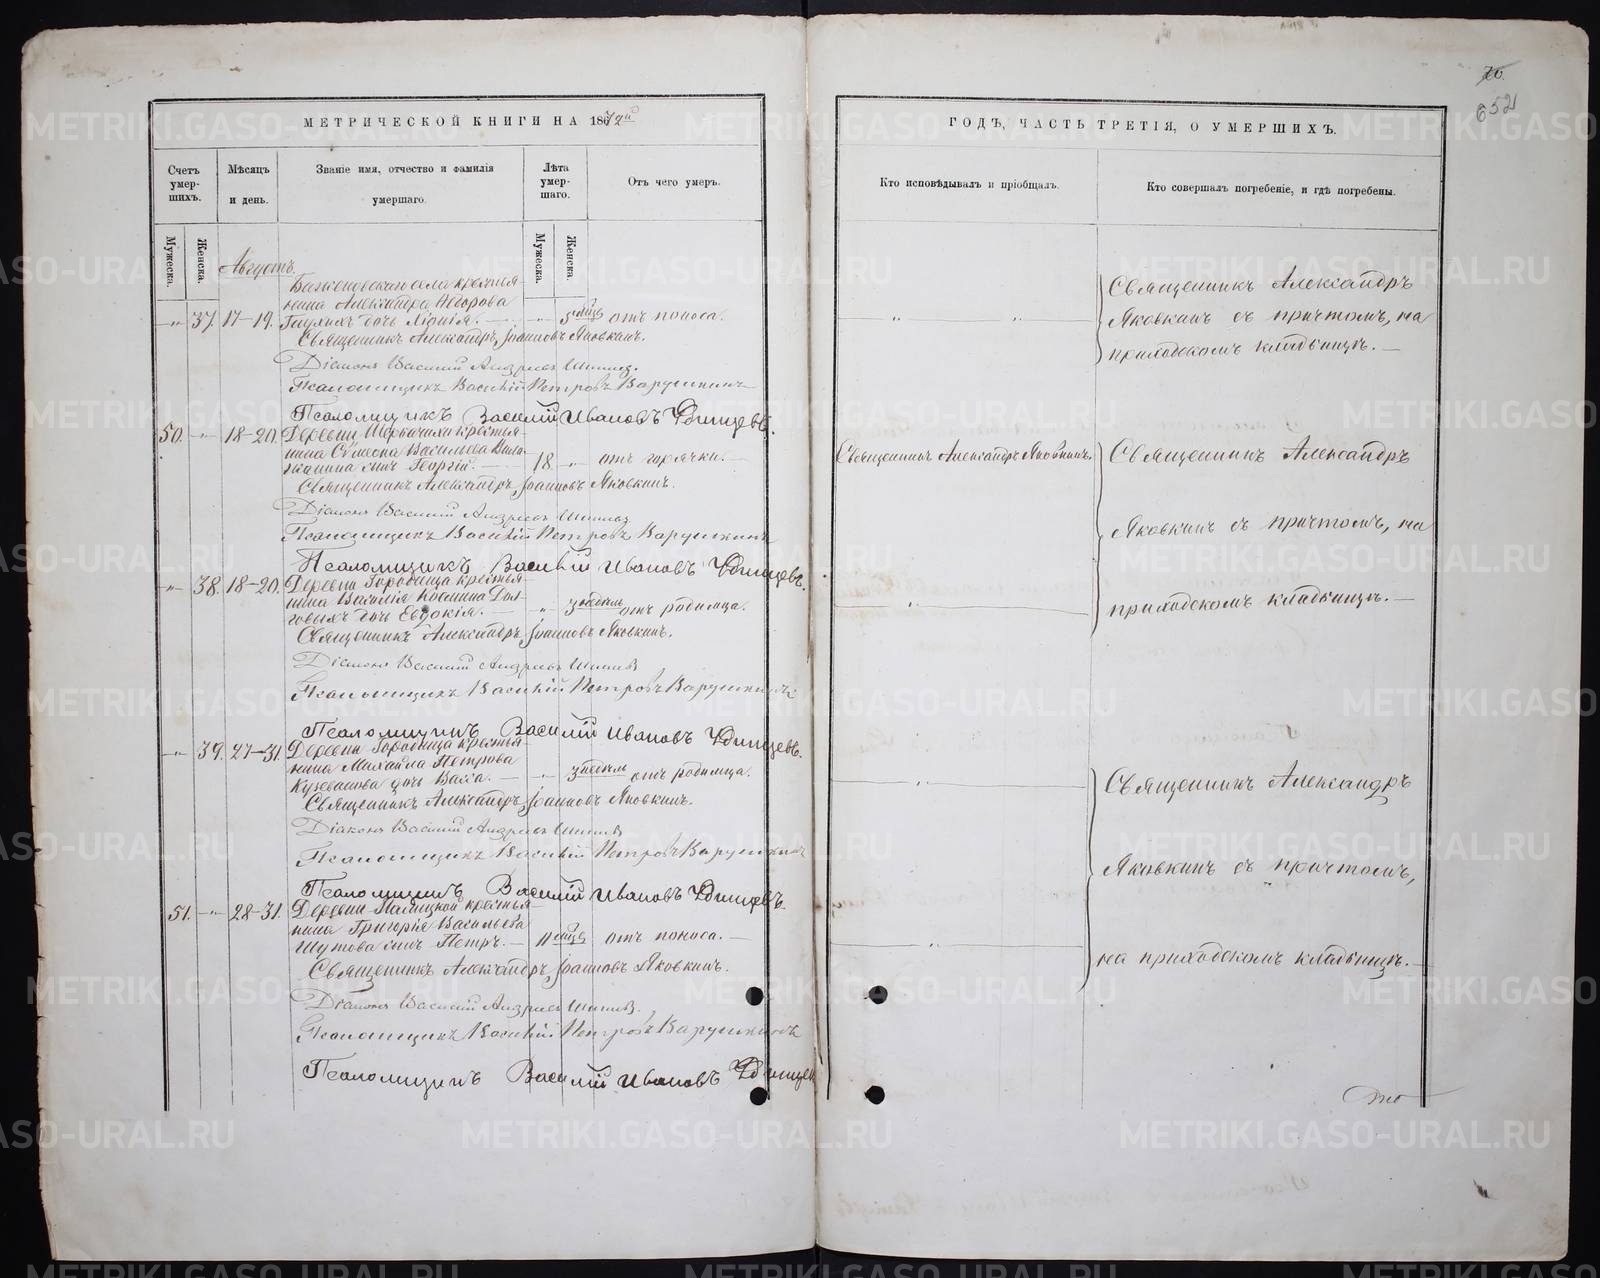 70.
652
МЕТРИЧЕСКОЙ КНИГИ НА 1872й
ГОДЪ, ЧАСТЬ ТРЕТІЯ, О УМЕРШИХЪ.
Счетъ умер-шихъ.
Мѣсяцъ и день.
Званіе имя, отчество и фамилія умершаго.
Лѣта умер-шаго.
Отъ чего умеръ.
Кто исповѣдывалъ и пріобщалъ.
Кто совершалъ погребеніе, и гдѣ погребены.
Мужеска.
Женска.
Мужеска.
Женска.
Августъ.
Баженовскаго села крестья-
нина Александра Ѳедорова
-"- 37. 17-19. дочь Лидія. - " - 5 мѣс отъ поноса. " "
Священникъ Александръ Іоанновъ Яковкинъ.
Діаконъ Василій Андреевъ
Псаломщикъ Василій Петровъ Варушкинъ
Псаломщикъ Василій Ивановъ Удинцевъ.
Священникъ Александръ
Яковкинъ съ причтомъ, на
приходскомъ кладбищѣ. -
50. -"- 18-20. Деревни крестья-
нина Сѵмеона Васильева
сынъ Георгій. - 18 -"- отъ горячки. -
Священникъ Александръ Яковкинъ.
Священникъ Александръ Іоанновъ Яковкинъ.
Діаконъ Василій Андреевъ
Псаломщикъ Василій Петровъ Варушкинъ
Псаломщикъ Василій Ивановъ Удинцевъ.
Священникъ Александръ
Яковкинъ съ причтомъ, на
приходскомъ кладбищѣ. -
-"- 38. 18-20. Деревни Городища крестья-
нина Василія Космина Дол-
говыхъ дочь Евдокія. - " 3 недѣль отъ родимца. "
Священникъ Александръ Іоанновъ Яковкинъ.
Діаконъ Василій Андреевъ
Псаломщикъ Василій Петровъ Варушкинъ
Псаломщикъ Василій Ивановъ Удинцевъ.
-"- 39. 27-31. Деревни Городища крестья-
нина Михаила Петрова
дочь Васса. - -"- 3 недѣль отъ родимца. "
Священникъ Александръ Іоанновъ Яковкинъ.
Діаконъ Василій Андреевъ
Псаломщикъ Василій Петровъ Варушкинъ
Псаломщикъ Василій Ивановъ Удинцевъ.
Священникъ Александръ
Яковкинъ съ причтомъ,
на приходскомъ кладбищѣ. -
51. -"- 28-31. Деревни крестья-
нина Григорія Васильева
Шутова сынъ Петръ. - 11 мѣсяц отъ поноса. - "
Священникъ Александръ Іоанновъ Яковкинъ.
Діаконъ Василій Андреевъ
Псаломщикъ Василій Петровъ Варушкинъ
Псаломщикъ Василій Ивановъ Удинцев
METRIKI.GASO-URAL.RU